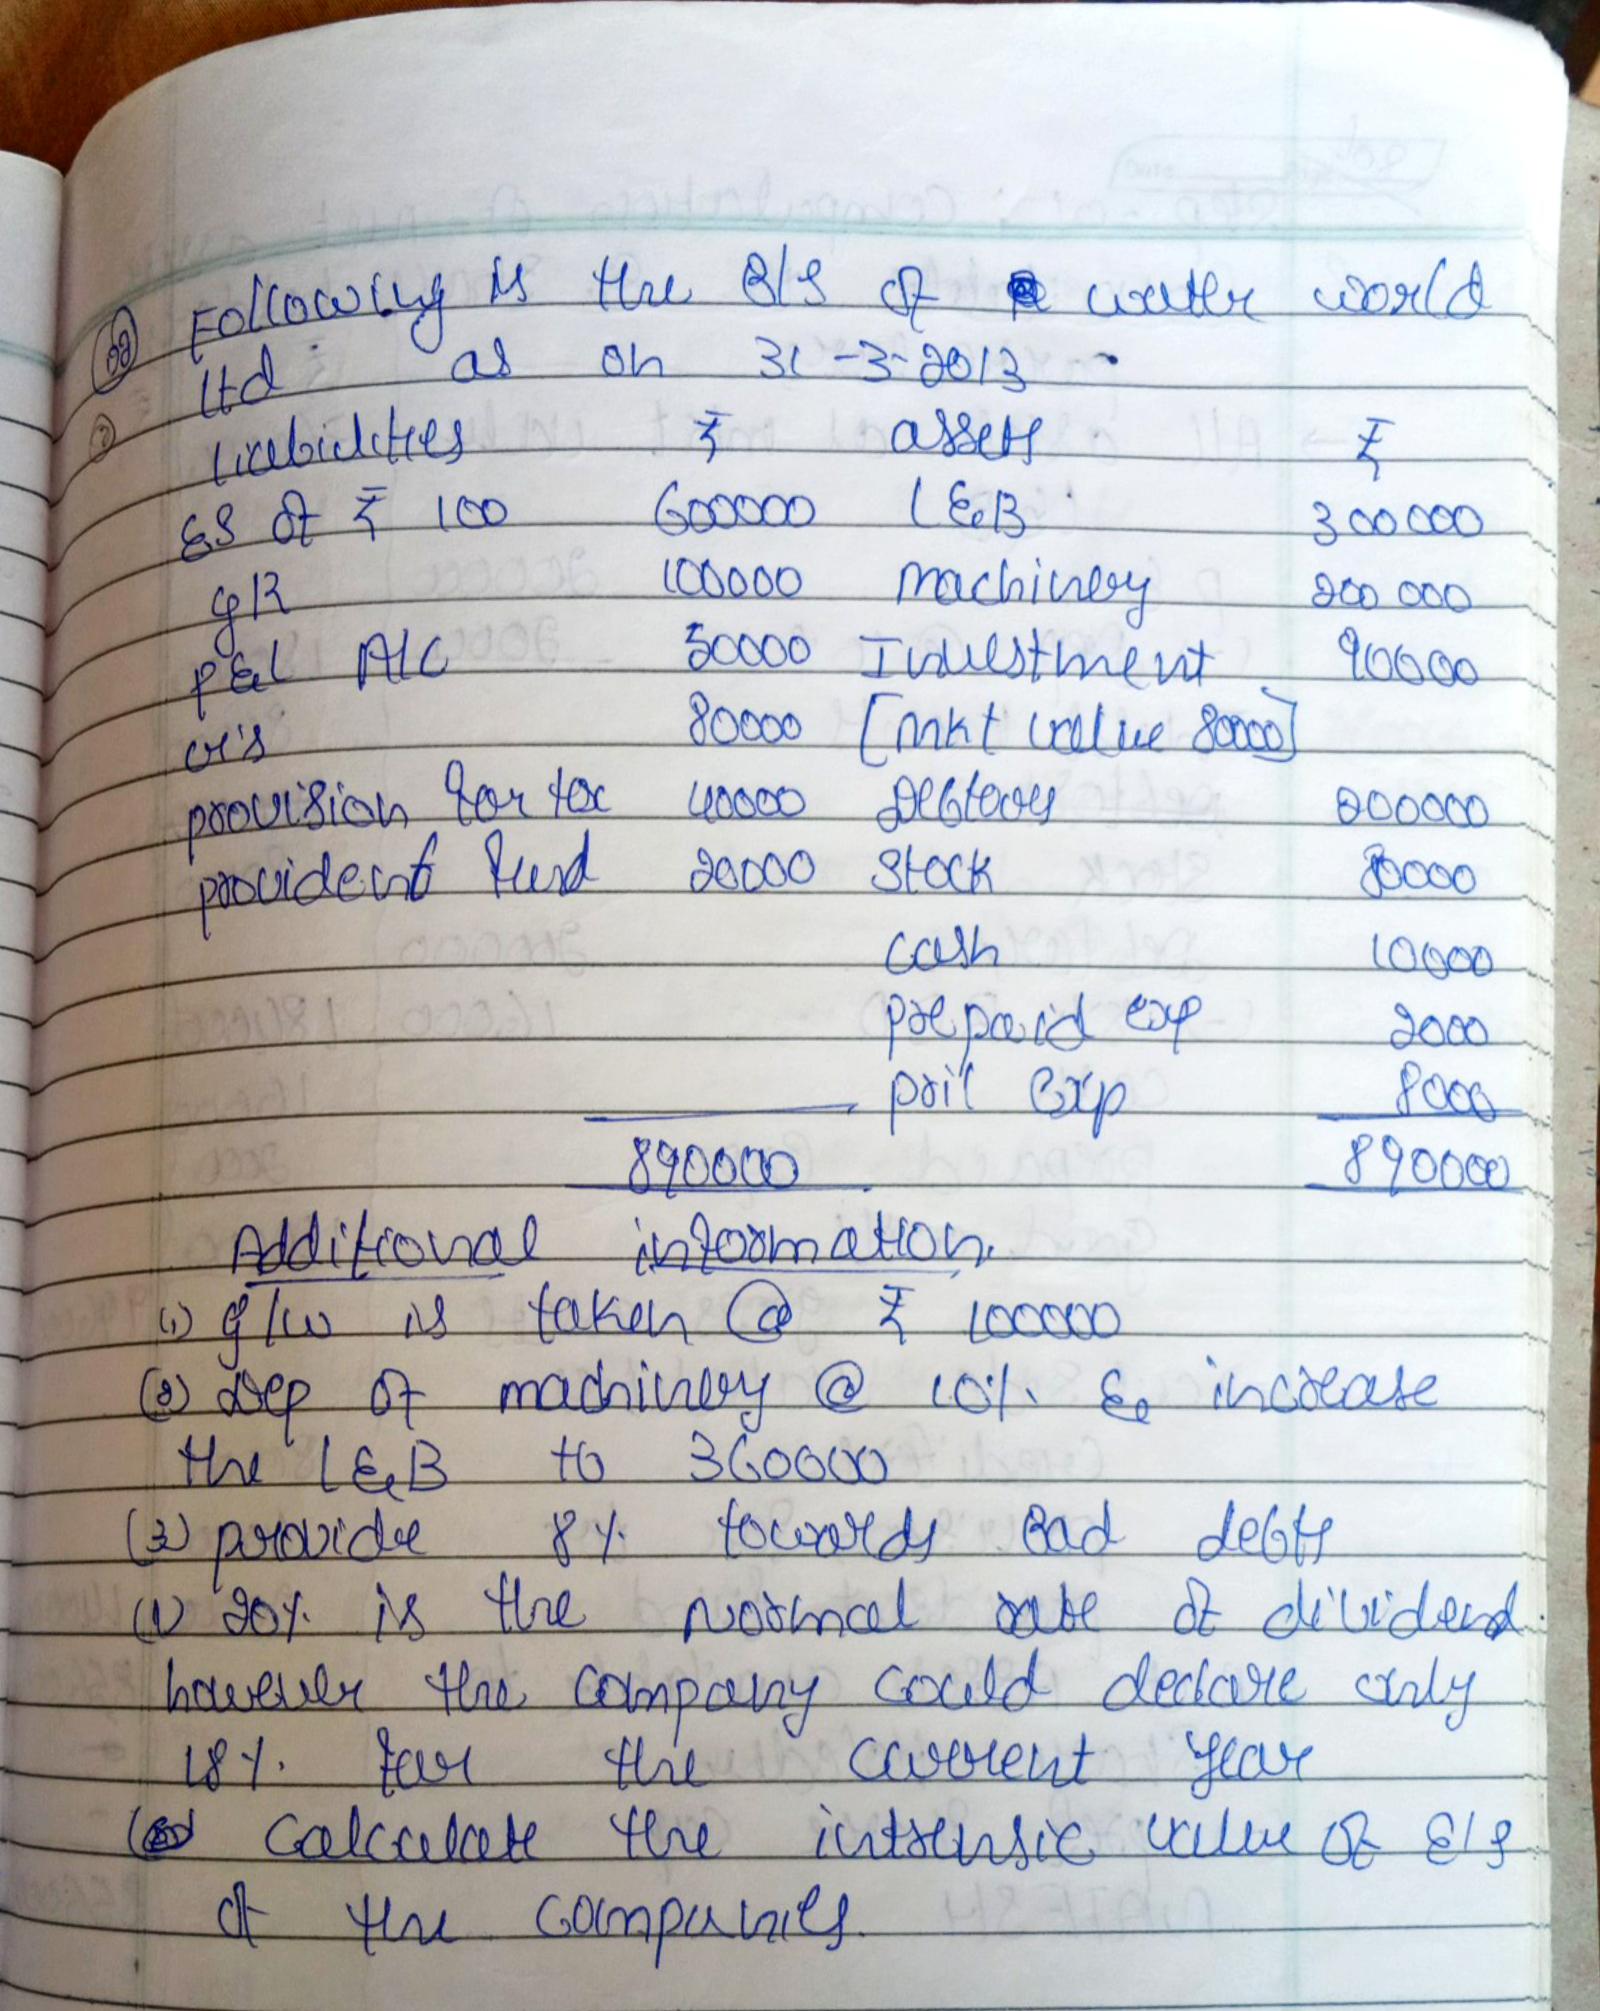 Following is the B/S of water world
ltd as on 31-3-2013
liabilities ₹ assets ₹
ES of ₹ 100 600000 L&B 300000
GR 100000 machinery 200000
P&L A/C 50000 Investment 90000
cr's 80000 [mkt value 80000]
provision for tax 40000 Debtors 200000
provident fund 20000 Stock 80000
cash 10000
prepaid exp 2000
pril Exp 8000
890000 890000
Additional information.
(1) g/w is taken @ ₹ 100000
(2) Dep of machinery @ 10% & increase
the L&B to 360000
(3) provide 8% towards Bad debts
(4) 20% is the normal rate of dividend.
however the company could declare only
18% for the current year
calculate the intrensic value of E/S
of the companies.